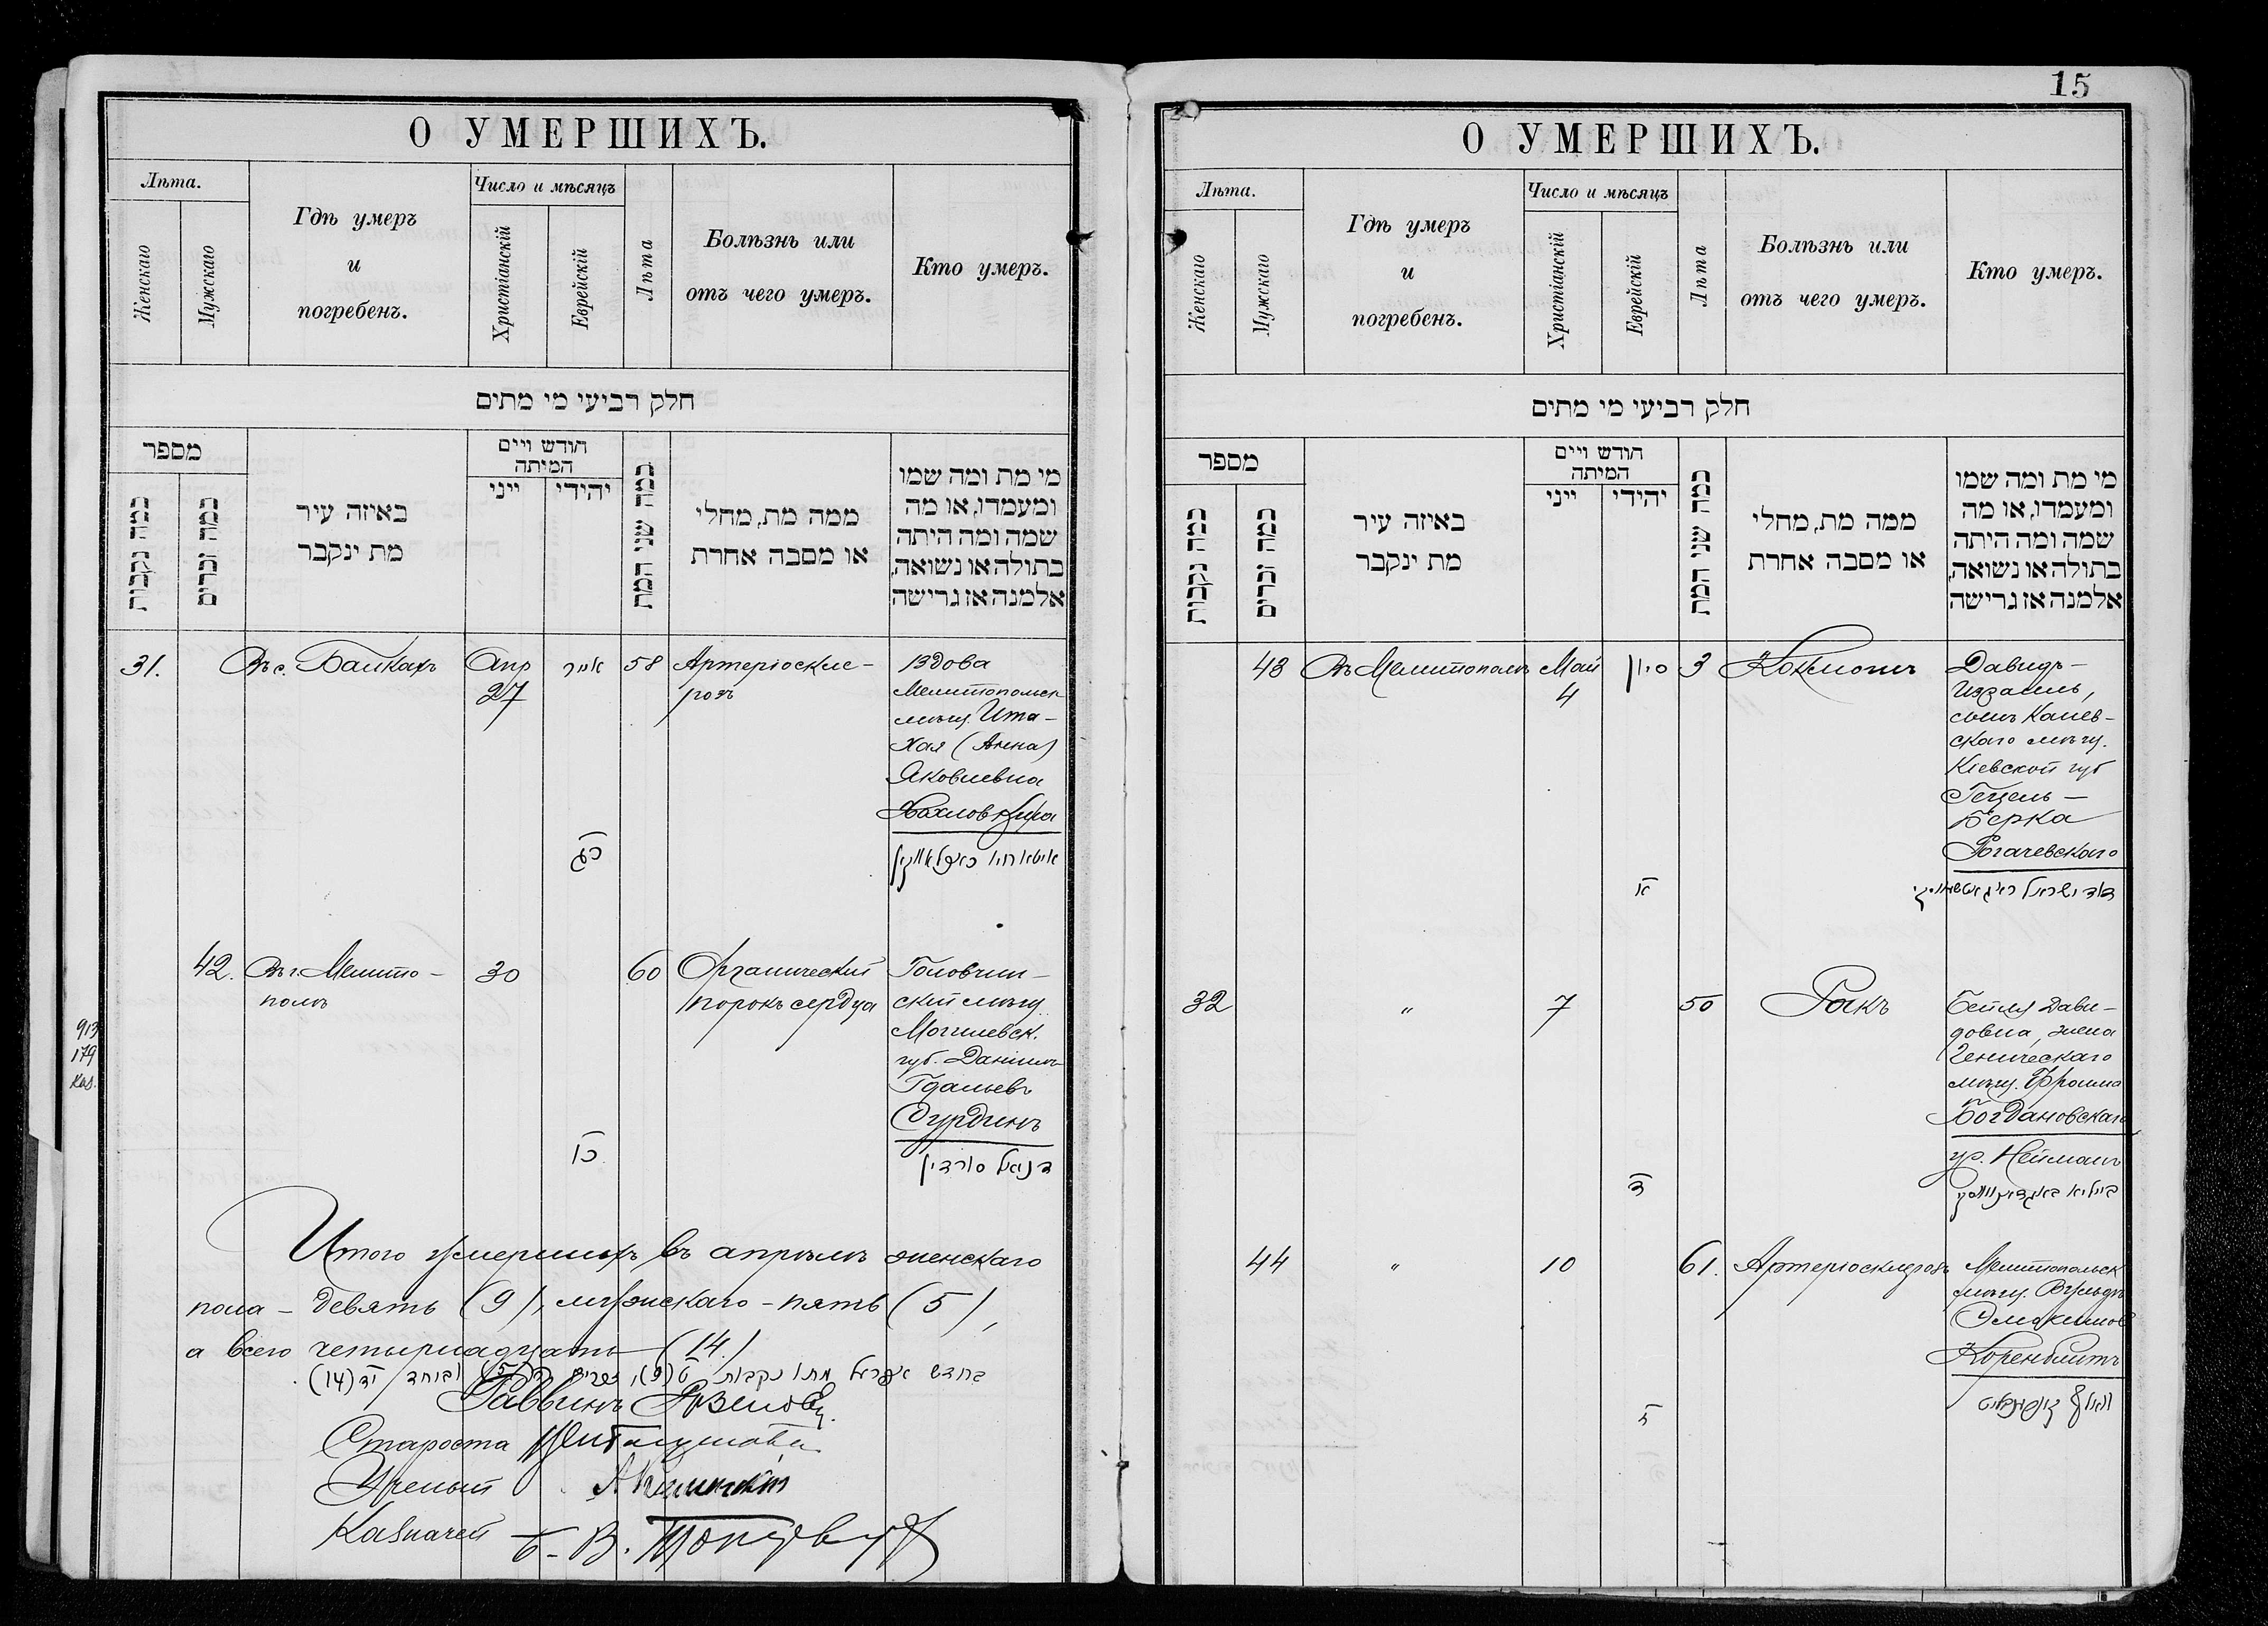 О УМЕРШИХЪ.
Лѣта.
Женскаго
Мужскаго
Гдѣ умеръ
и
погребенъ.
Число и мѣсяцъ
Христіанскій
Еврейскій
Лѣта
Болѣзнь или
отъ чего умеръ.
Кто умеръ.
חלק רביעי מי מתים
מספר
כמה נקבות
כמה זכרים
באיזה עיר
מת ינקבר
חודש ויים
המיתה
ייני
יהודי
כמה שני המת
ממה מת, מחלי
או מסבה אחרת
מי מת ומה שמו
ומעמדו, או מה
שמה ומה היתה
בתולה או נשואה,
אלמנה אז גרישה
31.
Въ с. Балкахъ
Апр
27
אייר
כג
58
Артеріоскле-
розъ
Вдова
Мелитопольск
мѣщ. Ита-
Хая (Анна)
Яковлевна
42.
Въ г. Мелито-
полѣ
30
כו
60
Органическій
порокъ сердца
Головчин-
скій мѣщ.
Могилевск.
губ. Даніилъ
Гдальевъ
Сурдинъ
דניאל סורדין
913
179
Итого умершихъ въ апрѣлѣ женскаго
пола - девять (9), мужскаго - пять (5),
а всего четырнадцать (14)
בחדש אפריל מתו נקבות ט (9), זכרים ה (5) וביחד יד (14)
Раввинъ
Староста
Ученый
Казначей Б. В.
15
О УМЕРШИХЪ.
Лѣта.
Женскаго
Мужскаго
Гдѣ умеръ
и
погребенъ.
Число и мѣсяцъ
Христіанскій
Еврейскій
Лѣта
Болѣзнь или
отъ чего умеръ.
Кто умеръ.
חלק רביעי מי מתים
מספר
כמה נקבות
כמה זכרים
באיזה עיר
מת ינקבר
חודש ויים
המיתה
ייני
יהודי
כמה שני המת
ממה מת, מחלי
או מסבה אחרת
מי מת ומה שמו
ומעמדו, או מה
שמה ומה היתה
בתולה או נשואה,
אלמנה אז גרישה
43
Въ Мелитополѣ
Май
4
סיון
א
3
Коклюшъ
Давидъ-
Израиль,
сынъ Канев-
скаго мѣщ.
Кіевской губ
Гецель-
Берка
Рогачевскаго
32
"
7
ד
50
Ракъ
Бейля Дави-
довна, жена
Геническаго
мѣщ. Фроима
Богдановскаго
ур. Нейманъ
44
"
10
ז
61.
Артеріосклерозъ
Мелитопольск
мѣщ. Вульфъ
Коренблитъ